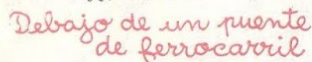 Debajo de un puente
de ferrocarril